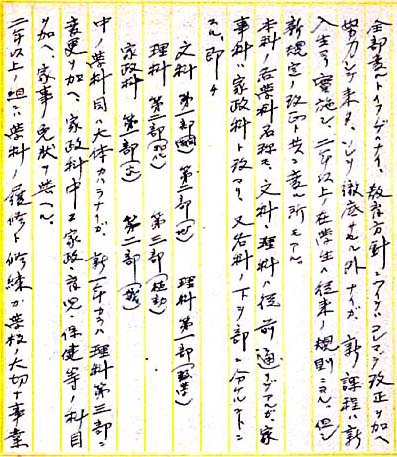 全部変ルトイフデハナイ、教育方針ニツイテハコレマデ改正ヲ加ヘ
努力シテ来タ、ヨリ徹底サセル外ナイガ、新課程ハ新
入生ヨリ実施シ、二年以上ノ在学生ハ従来ノ規則ニヨル。但シ
新規定ノ改正ト共ニ変ル所モアル。
本科ノ各学科名称モ、文科、理科ハ従前ノ通リデアルガ家
事科ハ家政科ト改マリ、又各科ノ下ヲ部ニ分ケルコトニ
スル、即チ
文科 第一部 第二部 理科 第一部(数学)
理科 第二部(物化) 第三部(植動)
家政科 第一部 第二部
中ノ学科目ハ大体カハラナイガ、新一年カラハ理科第三部ニ
変更ヲ加ヘ、家政科中ニ家政、育児、保健等ノ科目
ヲ加ヘ、家事免状ヲ与ヘル。
二年以上ノ組ハ学科ノ履修ト修練ガ学校ノ大切ナ事業